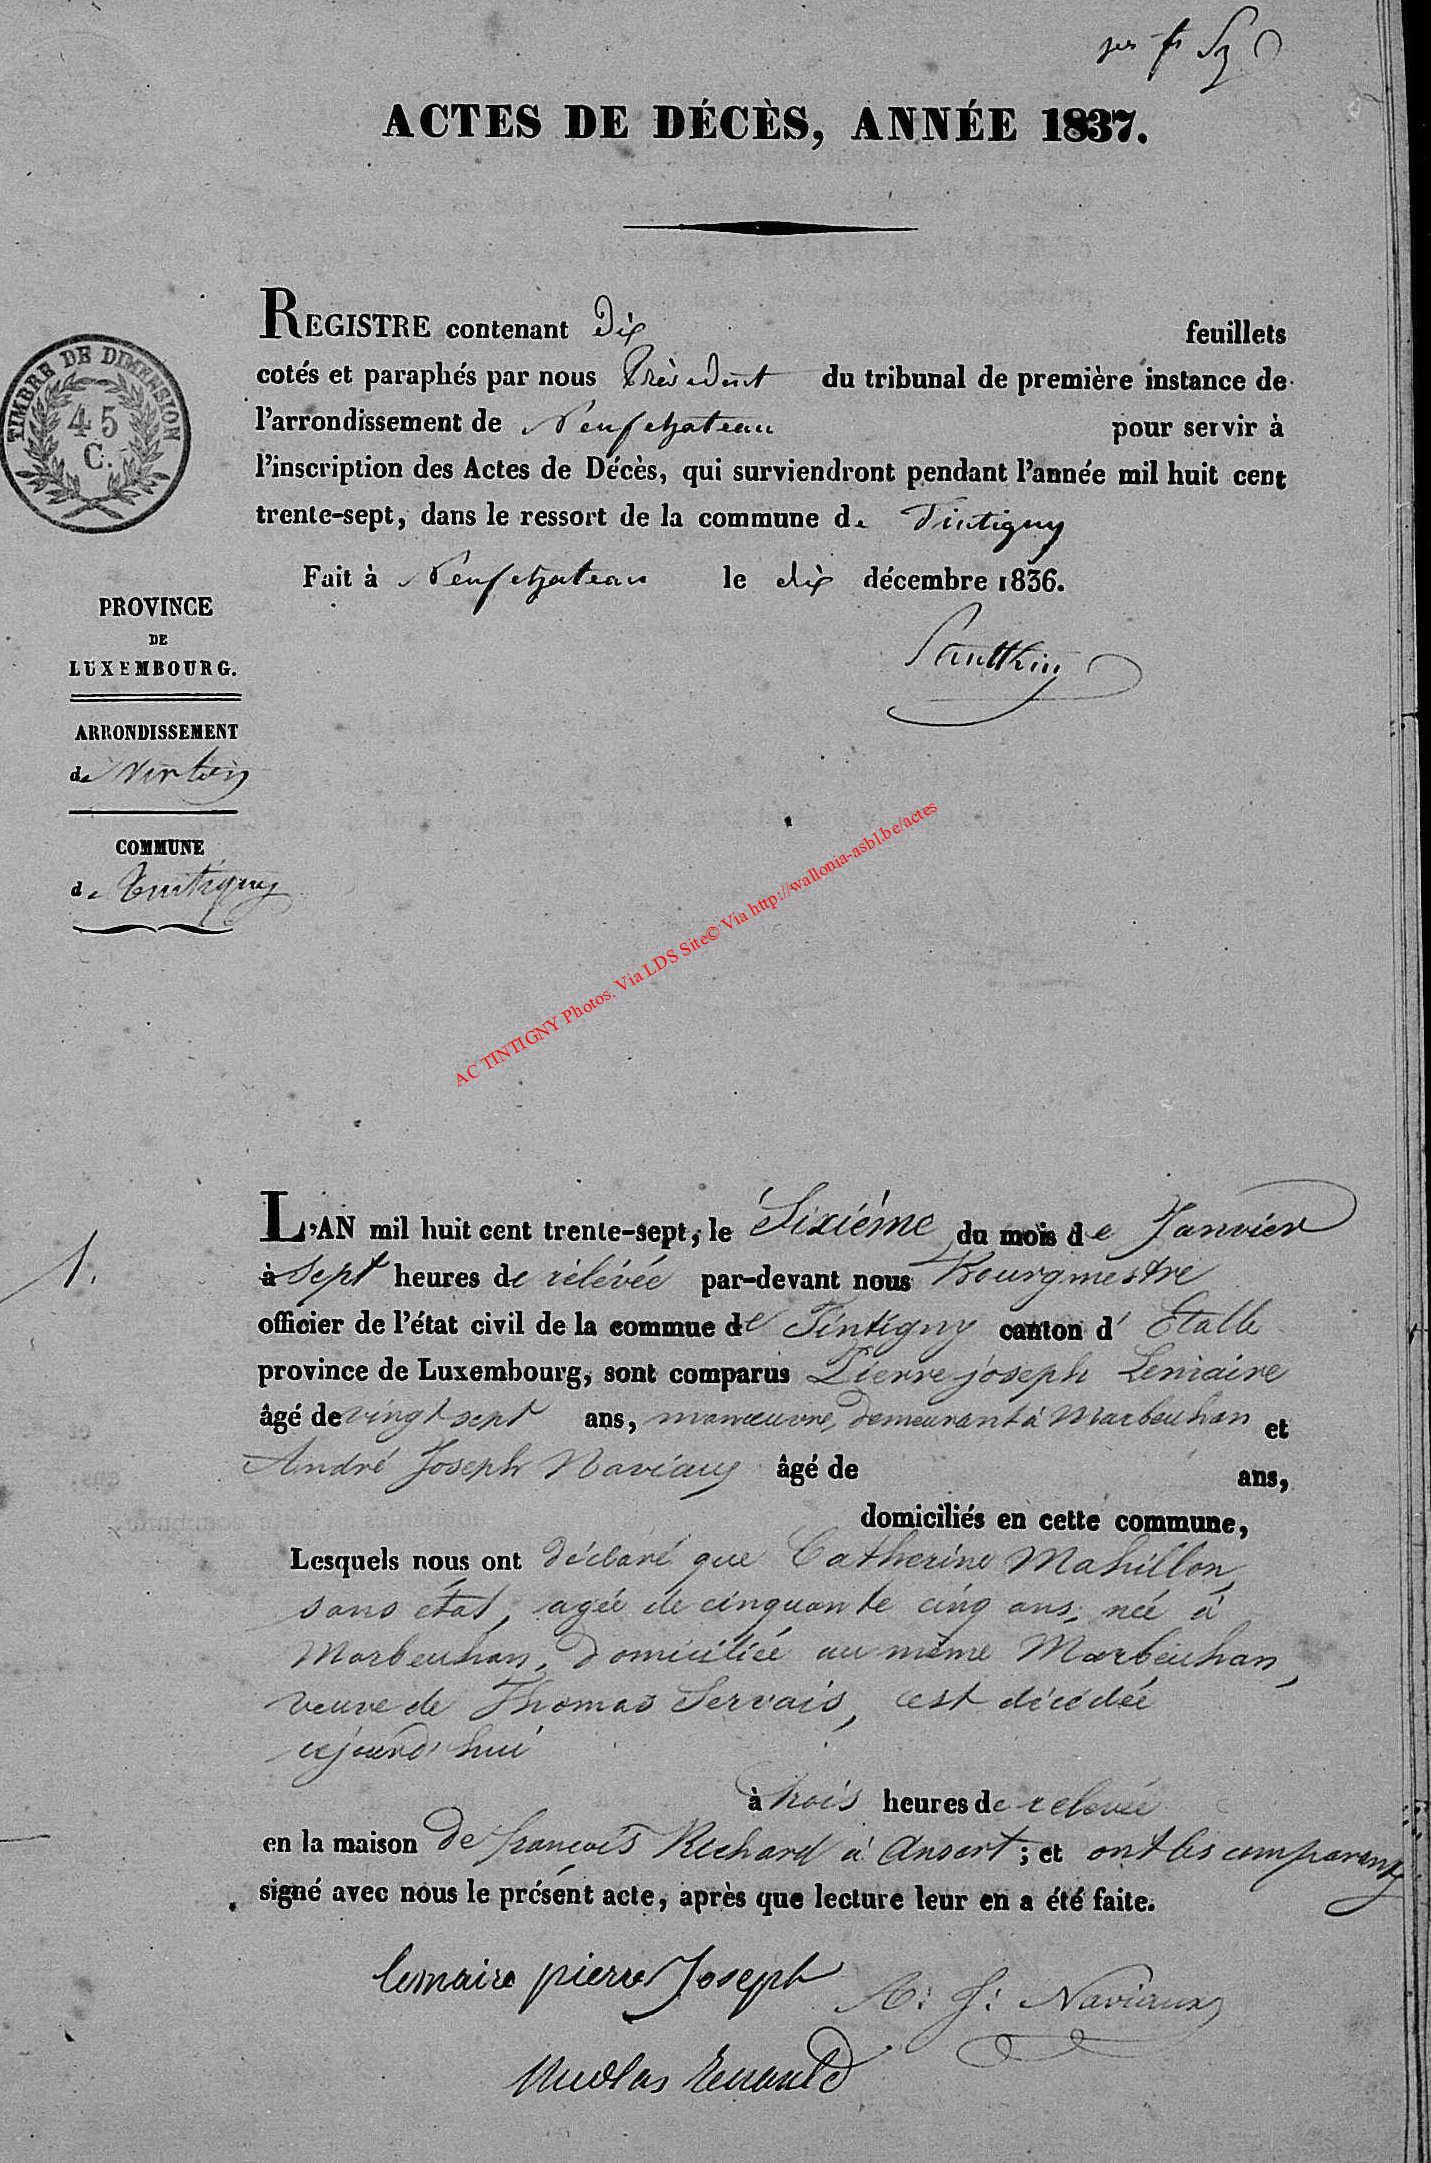 ACTES DE DÉCÈS, ANNÉE 1837.
REGISTRE contenant Dix feuillets
cotés et paraphés par nous Président du tribunal de première instance de
l'arrondissement de Neufchateau pour servir à
l'inscription des Actes de Décès, qui surviendront pendant l'année mil huit cent
trente-sept, dans le ressort de la commune de Tintigny
Fait à Neufchateau le dix décembre 1836.
TIMBRE DE DIMENSION
45
C.
PROVINCE
DE
LUXEMBOURG.
ARRONDISSEMENT
de Virton
COMMUNE
de Tintigny
AC TINTIGNY Photos. Via LDS Site© Via http://wallonia-asbl.be/actes
1.
L'AN mil huit cent trente-sept, le Sixiéme du mois de Janvier
à Sept heures de rélévée par-devant nous Bourgmestre
officier de l'état civil de la commue de Tintigny canton d' Etalle
province de Luxembourg, sont comparus Pierre joseph Lemaire
âgé de vingt sept ans, manœuvre, demeurant à Marbeuhan et
André Joseph Naviaux âgé de ans,
domiciliés en cette commune,
Lesquels nous ont déclaré que Catherine Mahillon,
sans état, agée de cinquante cinq ans, née à
Marbeuhan, domiciliée au même Marbeuhan,
veuve de Thomas Servais, est décédée
cejourd'hui
à trois heures de relevée
en la maison de francois Richard à Ansart ; et ont les comparants
signé avec nous le présent acte, après que lecture leur en a été faite.
lemaire pierre Joseph
A: J: Naviaux
Nicolas Renauld